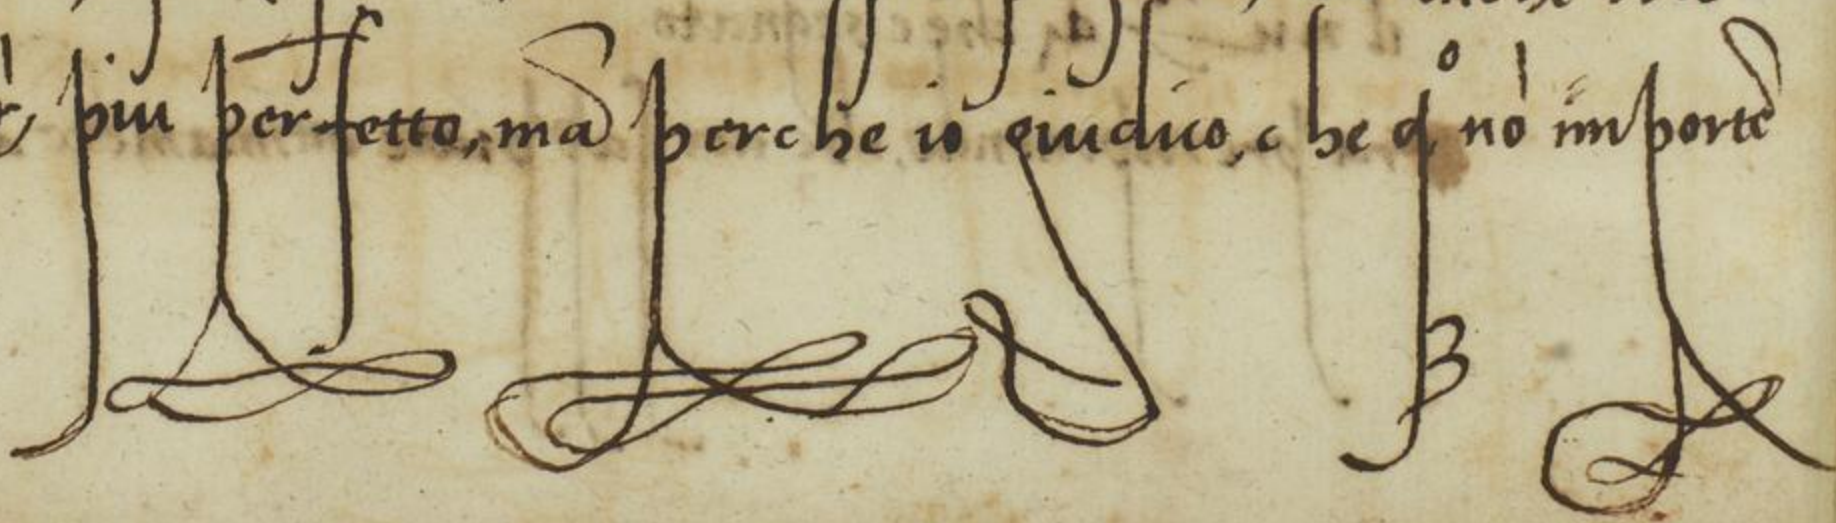 piu perfetto, ma perche io giudico, che qº nō importe